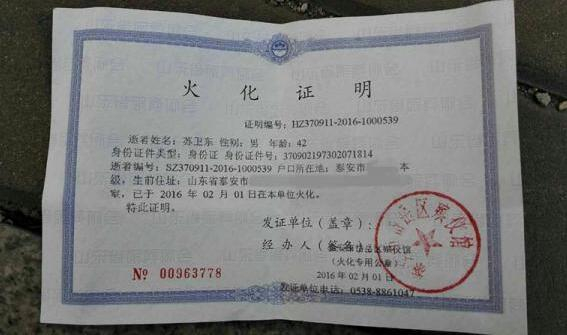 火化证明
证明编号：HZ370911-2016-1000539
逝者姓名：苏卫东 性别：男 年龄：42
身份证件类型：身份证 身份证件号：370902197302071814
逝者编号：SZ370911-2016-1000539 户口所在地：泰安市 本
级，生前住址：山东省泰安市
家，已于 2016 年 02 月 01 日在本单位火化。
特此证明。
发证单位（盖章）：
经办人（签名）：
岱岳区殡仪馆
（火化专用公章）
2016 年 02 月 01 日
№ 00963778
发证单位电话：0538-8861047